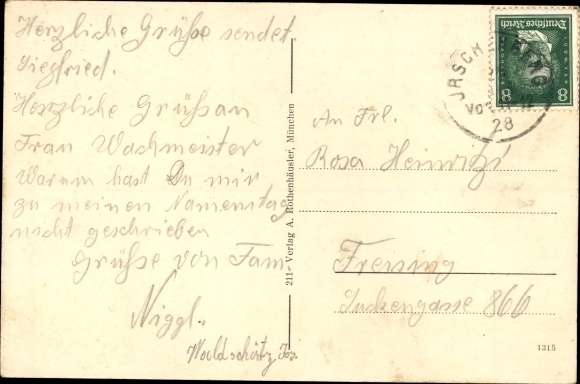 Herzliche Grüße sendet
Siegfried.
Herzliche Grüß an
Frau Wachmeister
Warum hast Du mir
zu meinen Namenstag
nicht geschrieben
Grüße von Fam
Niggl.
Waldschütz Jos.
211- Verlag A. Rothenhäusler, München
Deutsches Reich
8 8
28
An Frl.
Rosa
Freising
866
1315